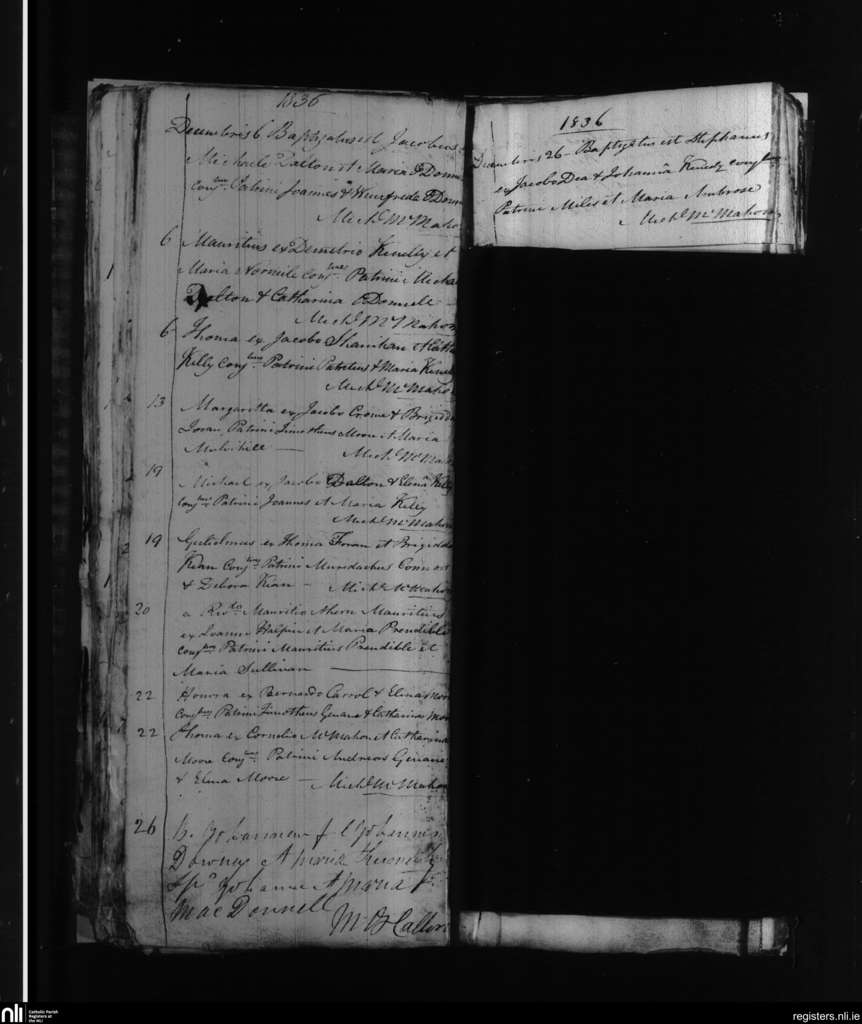 1836
Decembris 6 Baptizatus est Jacobus
Michaele Dalton et Maria O Donn
Conj Patrini Joannes & Winefreda O Donn
Mich McMaho
6 Mauritius ex Demetrio Kinelly et
Maria Conj Patrini Micha
Dalton & Catharina O Donnell
Mich McMahon
6 Thoma ex Jacobo Shanihan et Cath
Kelly Conj Patrini Patritius & Maria
Mich McMaho
13 Margaritta ex Jacobo Crowe & Brigidd
Patrini Timotheus Moore et Maria
Mulvihill
Mich McMaho
19 Michael ex Jacobo Dalton & Elena Kelly
Conj Patrini Joannes et Maria Kelly
Mich McMahon
19 Gulielmus ex Thoma Foran et Brigidda
Kean Conj Patrini Muredachus Connors
& Debora Kean – Mich McMahon
20 a Revdo Mauritio Ahern Mauritius
ex Joanne Halpin et Maria Prendible
Conj Patrini Mauritius Prendible et
Maria Sullivan
22 Honora ex Bernardo Carrol & Elena
Conj Patrini Timotheus & Catharina Mo
22 Thoma ex Cornelio McMahon et Catharina
Moore Conj Patrini Andreas
& Elena Moore – Mich McMahon
26 B.
Downey et Maria
Sp Johanne et Maria
MacDonnell
1836
Decembris 26 – Baptizatus est Stephanus
ex Jacobo Dea & Johanna Kenedy Conj
Patrini Miles et Maria Ambrose
Mich McMahon
nli
Catholic Parish
Registers at
the NLI
registers.nli.ie